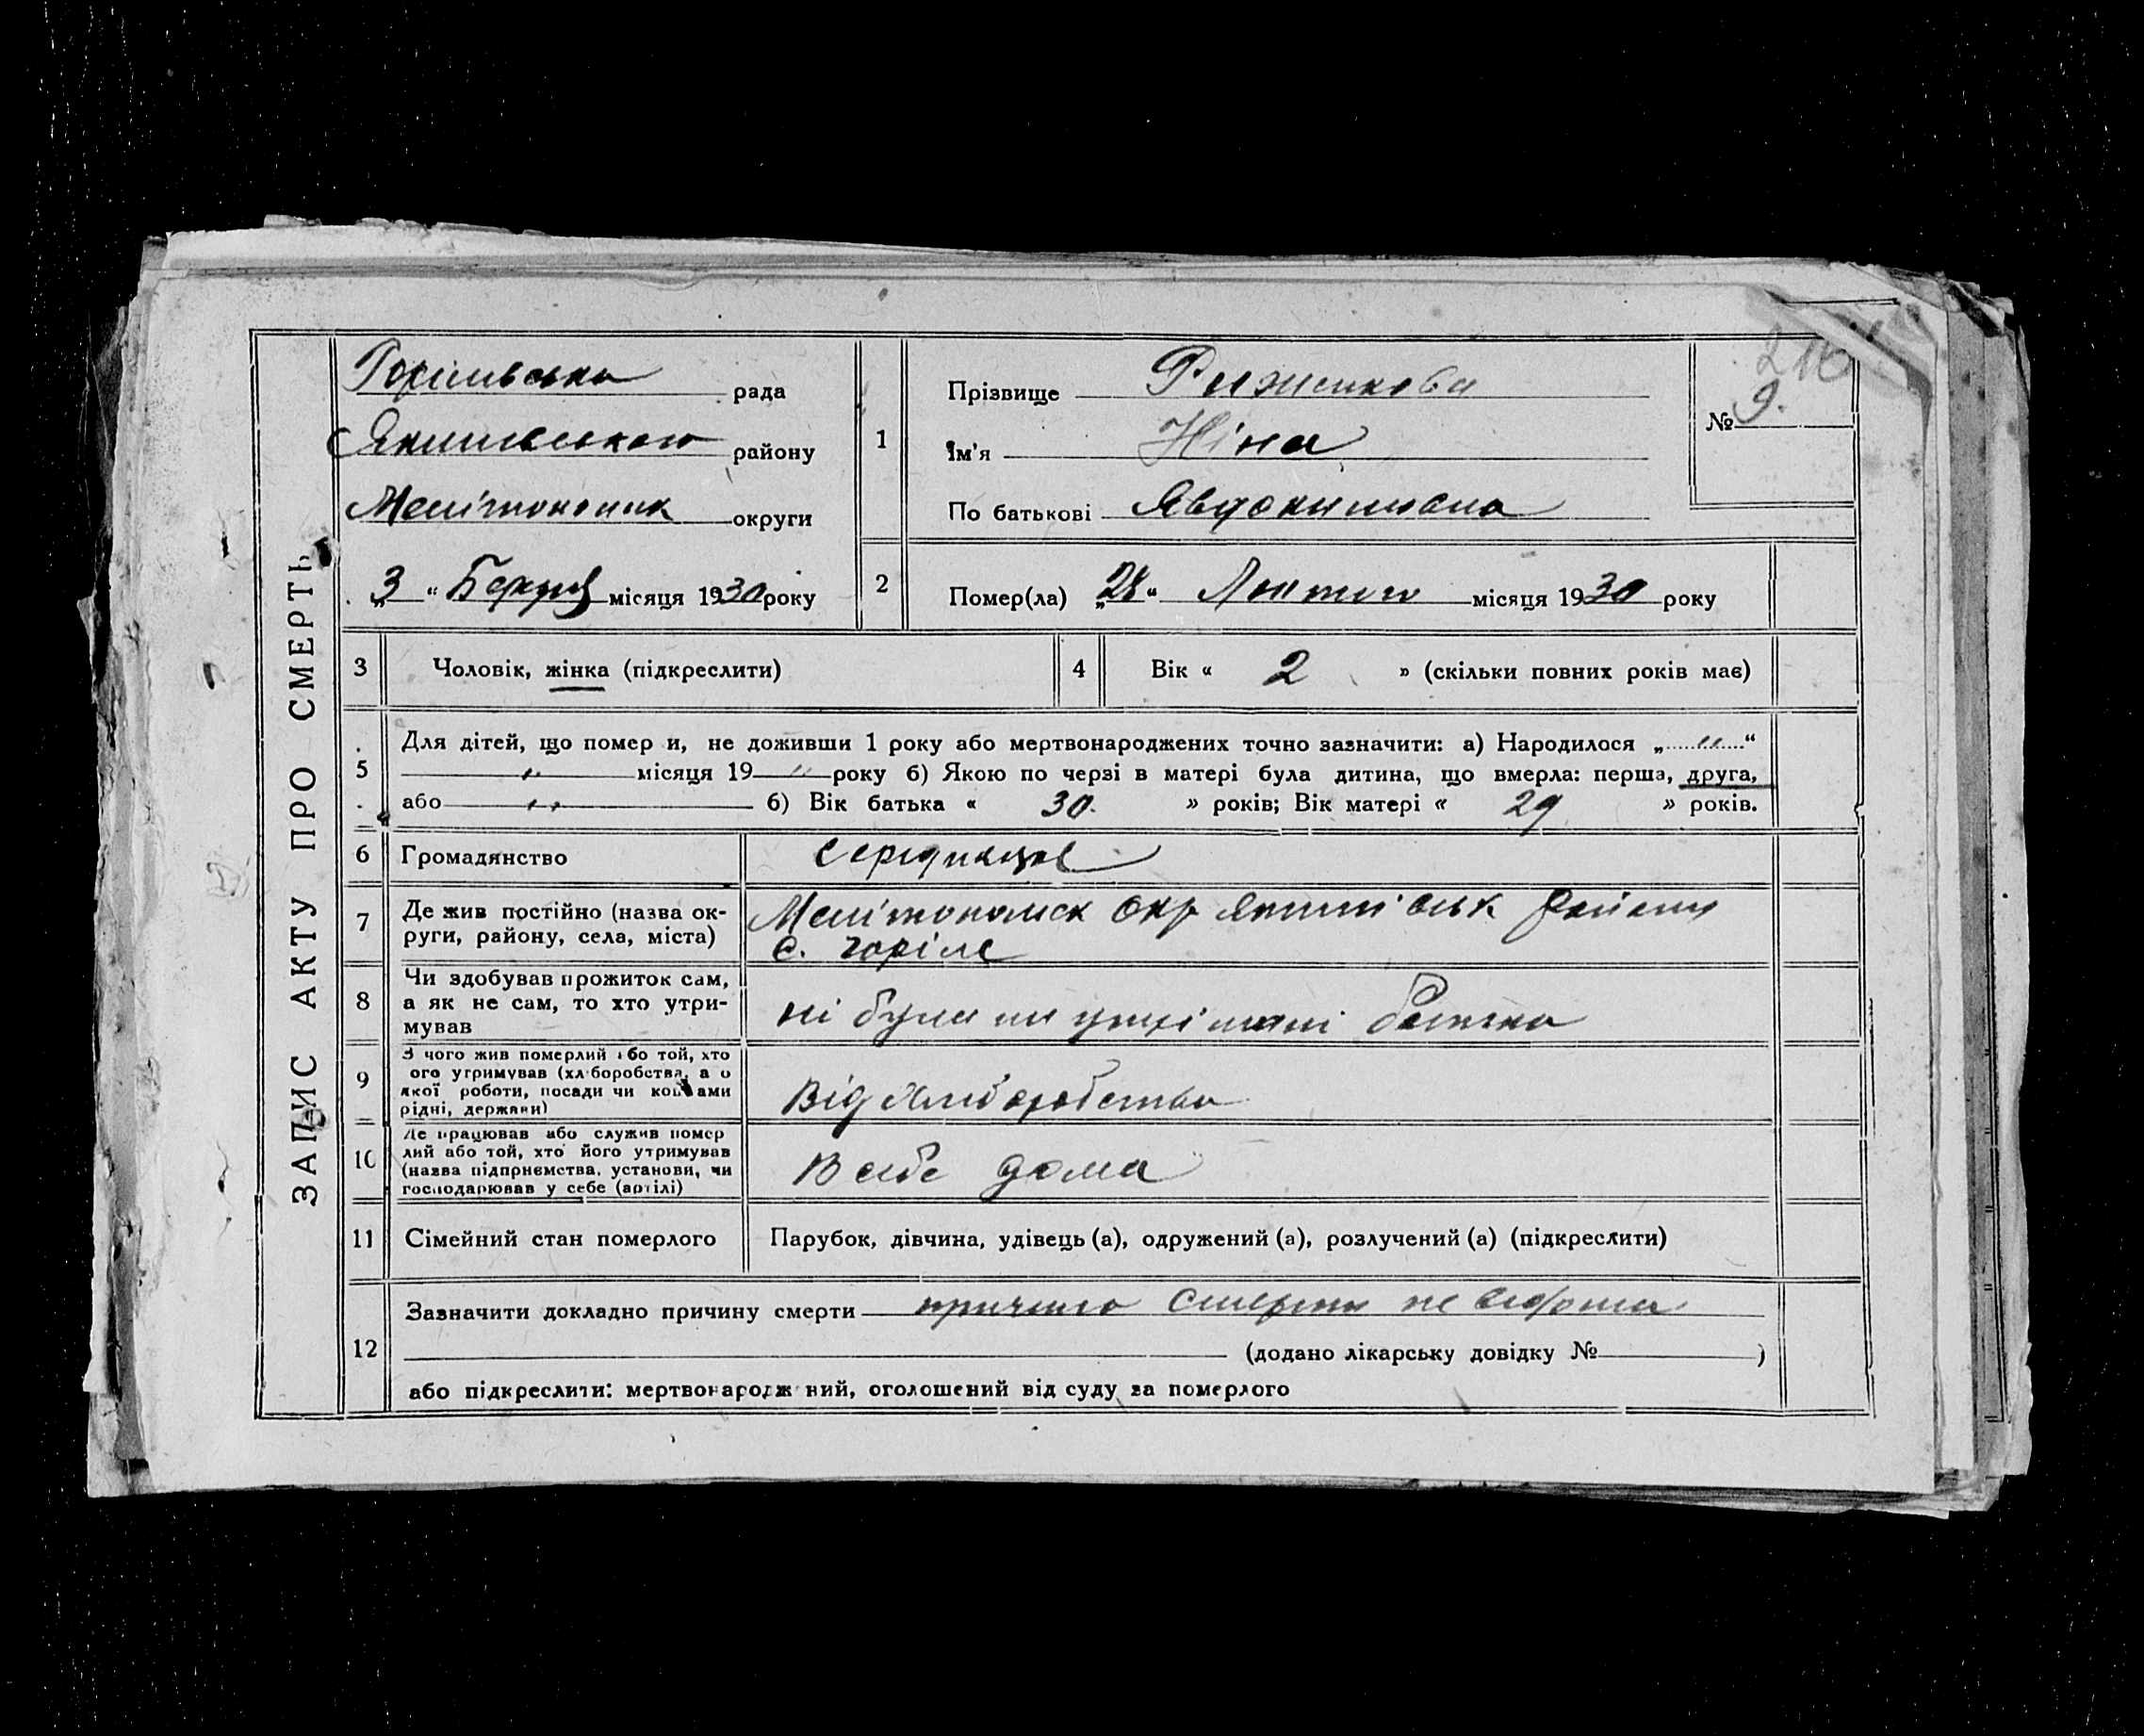 216
ЗАПИС АКТУ ПРО СМЕРТЬ
Горілівська рада
Якимівського району
Мелітопольск округи
„3“ Березня місяця 1930 року
1
Прізвище Рижикова
Ім'я Ніна
По батькові Явдокимовна
№ 9.
2 Помер(ла) „28“ Лютого місяця 1930 року
3 Чоловік, жінка (підкреслити)
4 Вік « 2 » (скільки повних років має)
5
Для дітей, що помер и, не доживши 1 року або мертвонароджених точно зазначити: а) Народилося „ " “
" місяця 19 " року б) Якою по черзі в матері була дитина, що вмерла: перша, друга,
або " б) Вік батька « 30 » років; Вік матері « 29 » років.
6 Громадянство
7 Де жив постійно (назва ок-
руги, району, села, міста)
Мелітопольск Окр Якимівськ Району
с. Горіле
8 Чи здобував прожиток сам,
а як не сам, то хто утри-
мував
ні була на утріманні батька
9 З чого жив померлий або той, хто
ого утримував (хл боробства, а о
якої роботи, посади чи кош ами
рідні, держави)
Від хліборобства
10 Де працював або служив помер
лий або той, хто його утримував
(назва підприємства, установи, чи
господарював у себе (артілі)
В себе дома
11 Сімейний стан померлого
Парубок, дівчина, удівець (а), одружений (а), розлучений (а) (підкреслити)
12
Зазначити докладно причину смерти причина смерти не
(додано лікарську довідку № )
або підкреслити: мертвонародж ний, оголошений від суду за померлого